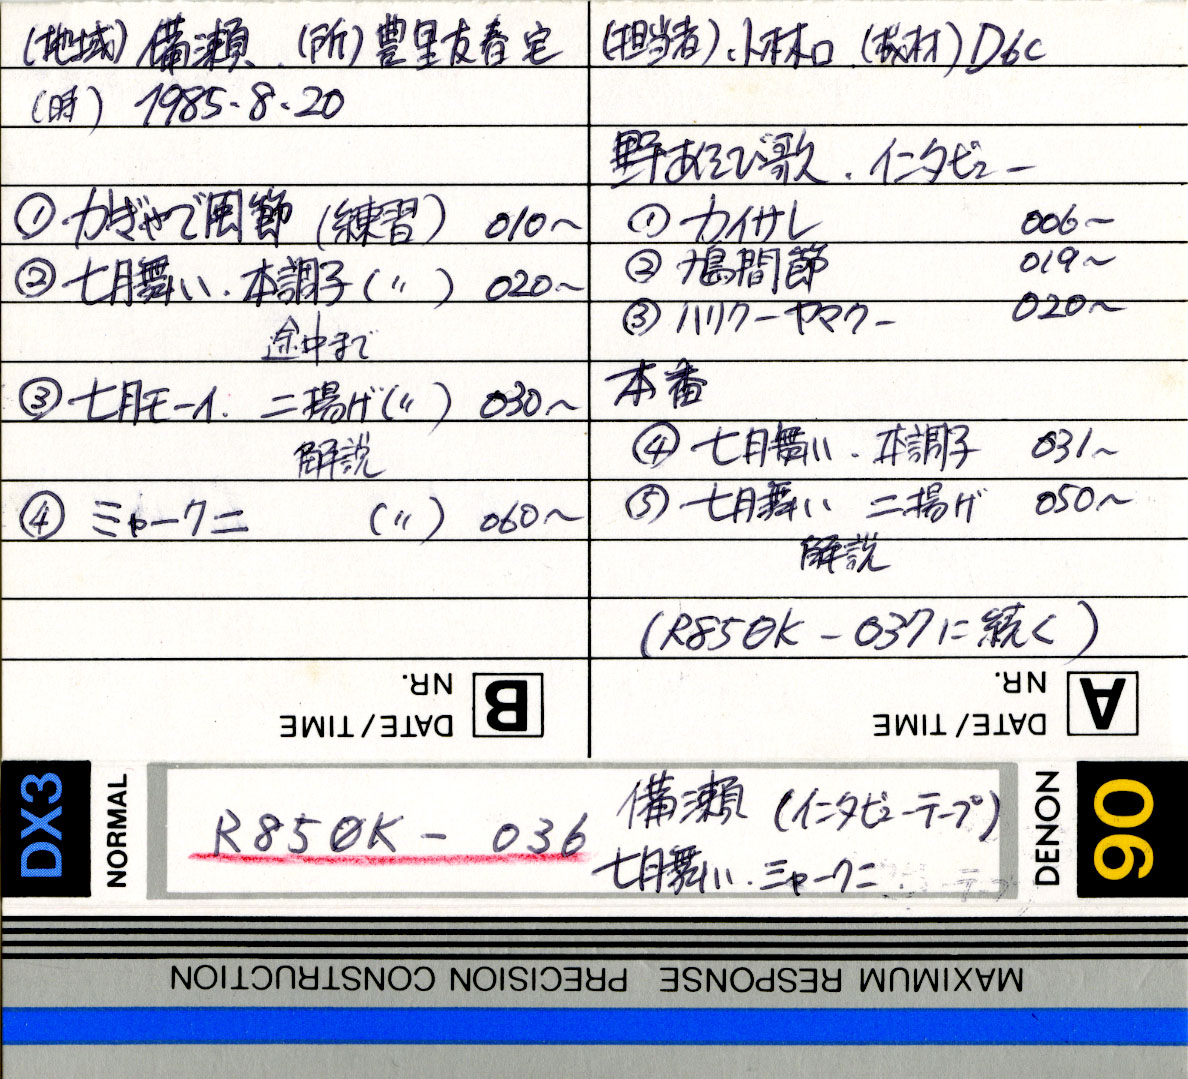 (地域) 備瀬 (所) 豊里友春宅
(時) 1985.8.20
① かぎやで風節 (練習) 010〜
② 七月舞い.本調子 (〃) 020〜
途中まで
③ 七月モーイ. 二揚げ (〃) 030〜
解説
④ ミャークニ (〃) 060〜
(担当者) 小林(公) (機材) D6C
野あそび歌.インタビュー
① カイサレ 006〜
② 鳩間節 019〜
③ ハリクーヤマクー 020〜
本番
④ 七月舞い.本調子 031〜
⑤ 七月舞い 二揚げ 050〜
解説
(R850K-037に続く)
B NR.
DATE/TIME
A NR.
DATE/TIME
DX3
NORMAL
R850K- 036
備瀬 (インタビューテープ)
七月舞い.ミャークニ
DENON
90
MAXIMUM RESPONSE PRECISION CONSTRUCTION